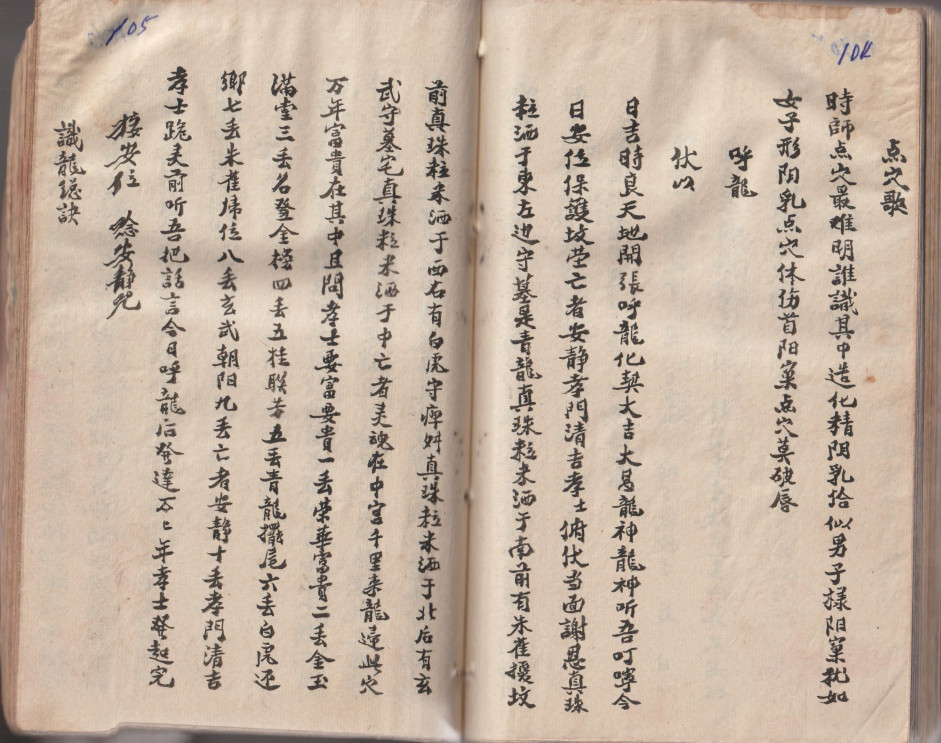 104
点穴歌
時師点穴最难明誰識其中造化精阴乳恰似男子樣阳窠犹如
女子形阳乳点穴休伤首阳窠点穴莫破唇
呼龍
伏以
日吉時良天地開張呼龍化契大吉大昌龍神龍神听吾叮嚀今
日安位保護坟茔亡者安静孝門清吉孝士俯伏当面謝恩真珠
粒洒于東左边守墓是青龍真珠粒米洒于南前有朱雀擾坟
105
前真珠粒米洒于西右有白虎守 真珠粒米洒于北后有玄
武守墓宅真珠粒米洒于中亡者灵魂在中宫千里来龍 此穴
万年富貴在其中且問孝士要富要貴一丢荣華富貴二丢金玉
满堂三丢名登金榜四丢五桂联芳五丢青龍擺尾六丢白虎还
鄉七丢朱雀 位八丢玄武朝阳九丢亡者安静十丢孝門清吉
孝士跪灵前听吾把話言今日呼龍后發達万二年孝士發起完
接安位 唸安静咒
識龍總訣